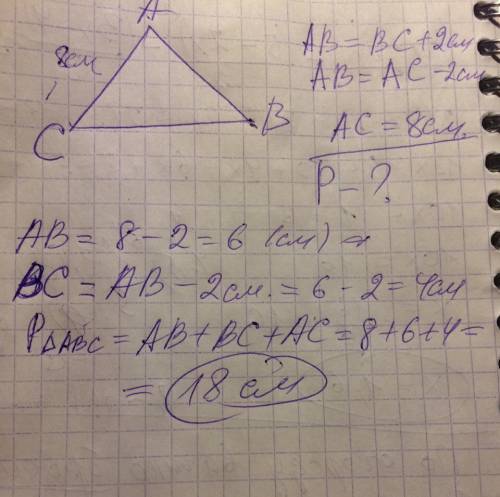 A
8см
C
B
AB = BC + 2см
AB = AC - 2см
AC = 8см.
P - ?
AB = 8 - 2 = 6 (см) ⇒
BC = AB - 2см. = 6 - 2 = 4см
P∆ABC = AB + BC + AC = 8 + 6 + 4 =
= 18 см